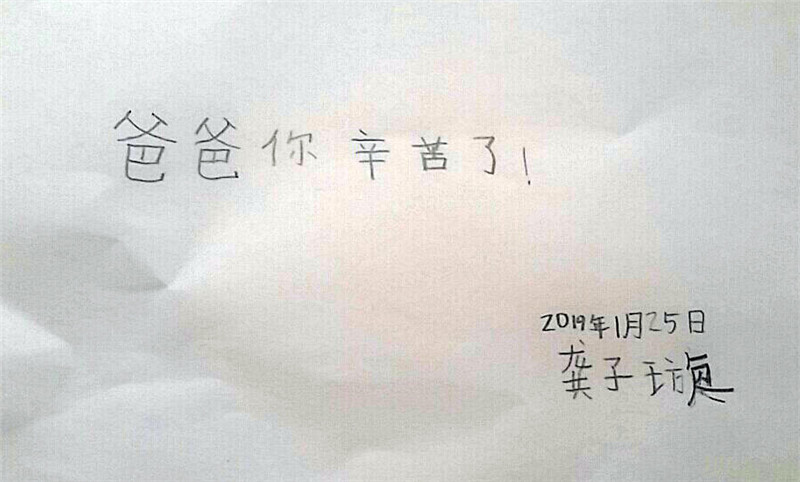 爸爸你辛苦了!
2019年1月25日
龚子璇